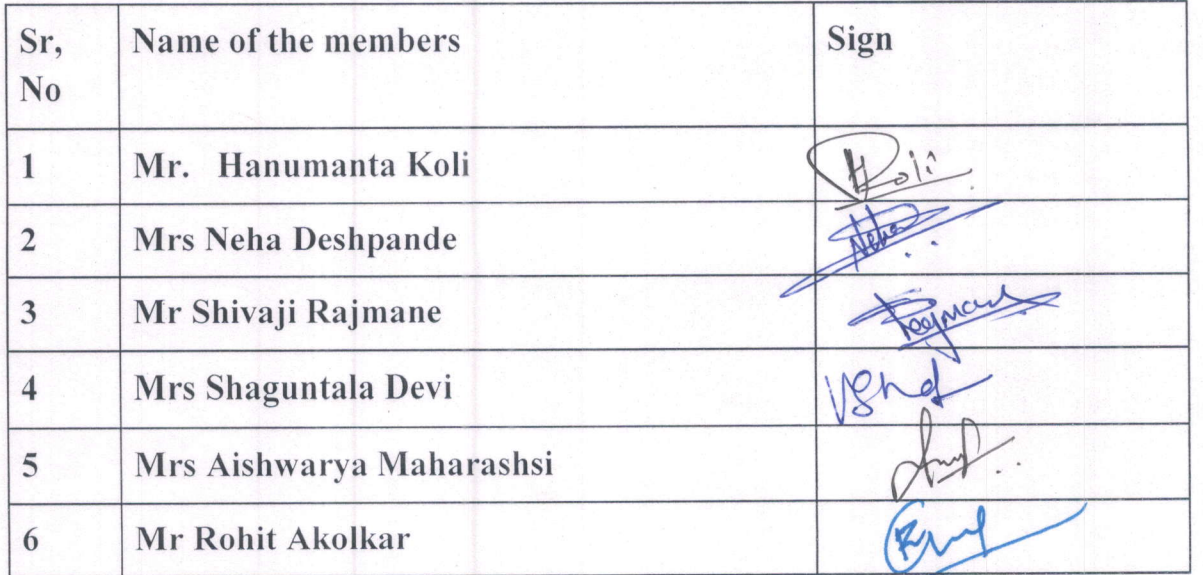 Sr, Name of the members Sign
No
1 Mr. Hanumanta Koli Koli
2 Mrs Neha Deshpande Neha
3 Mr Shivaji Rajmane
4 Mrs Shaguntala Devi
5 Mrs Aishwarya Maharashsi
6 Mr Rohit Akolkar